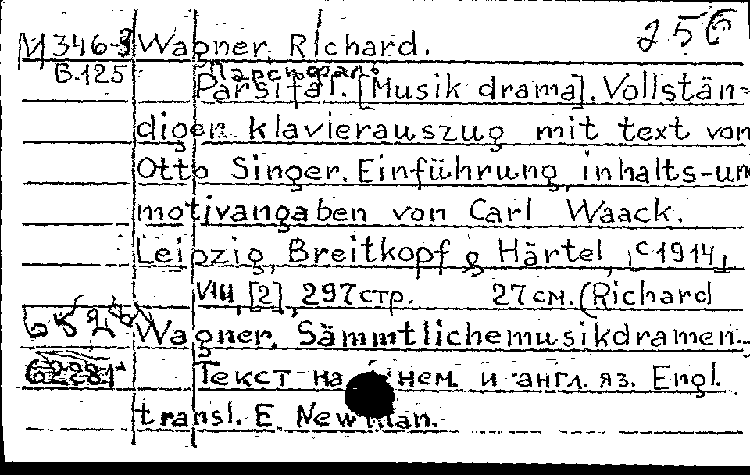 М346-3 Wagner, Richard. 256
В.125 Парсифаль
Parsifal. [Musik drama]. Vollstän-
digen klavierauszug mit text von
Otto Singer. Einführung, inhalts-un
motivangaben von Carl Waack.
Leipzig, Breitkopf & Härtel, [c1914]
VIII, [2], 297 стр. 27 см. (Richard
Wagner. Sämmtlichemusikdramen...
62281 Текст на нем. и англ. яз. Engl.
transl. E. Newman.